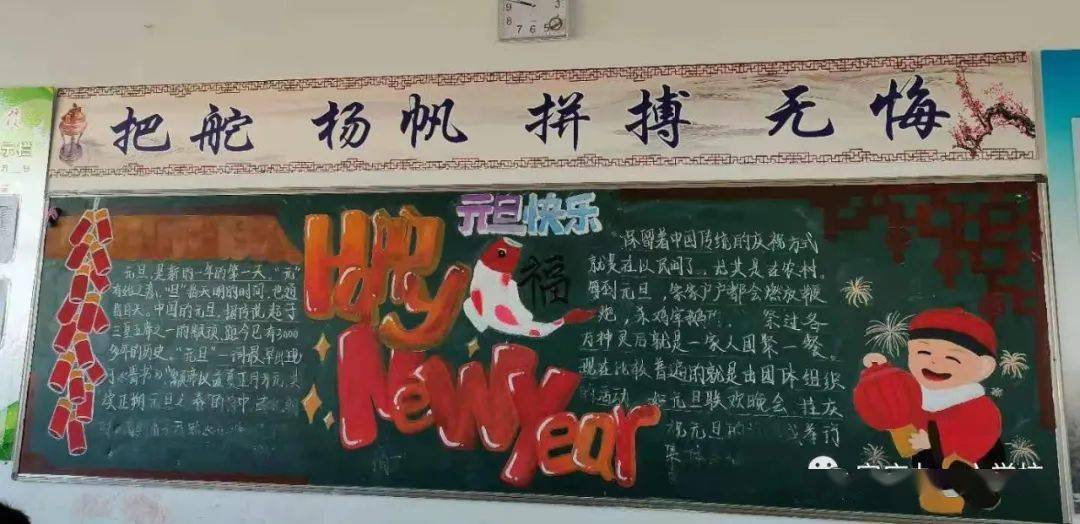 把舵 杨帆 拼搏 无悔
元旦快乐
Happy
New Year
福
元旦，是新的一年的第一天。"元"
有始之意，"旦"指天明的时间，也通
指白天。中国的元旦，据传说起于
三皇五帝之一的颛顼，距今已有3000
多年的历史。"元旦"一词最早出现
于《晋书》："颛帝以孟夏正月为元，其
实正朔元旦之春"的
保留着中国传统的庆祝方式
就是在以民间了，尤其是在农村。
每到元旦，家家户户都会燃放鞭
炮，杀鸡宰鹅
祭过各
方神灵后就是一家人团聚一餐。
现在比较普遍的就是由团体组织
的活动，如元旦联欢晚会 挂庆
祝元旦的